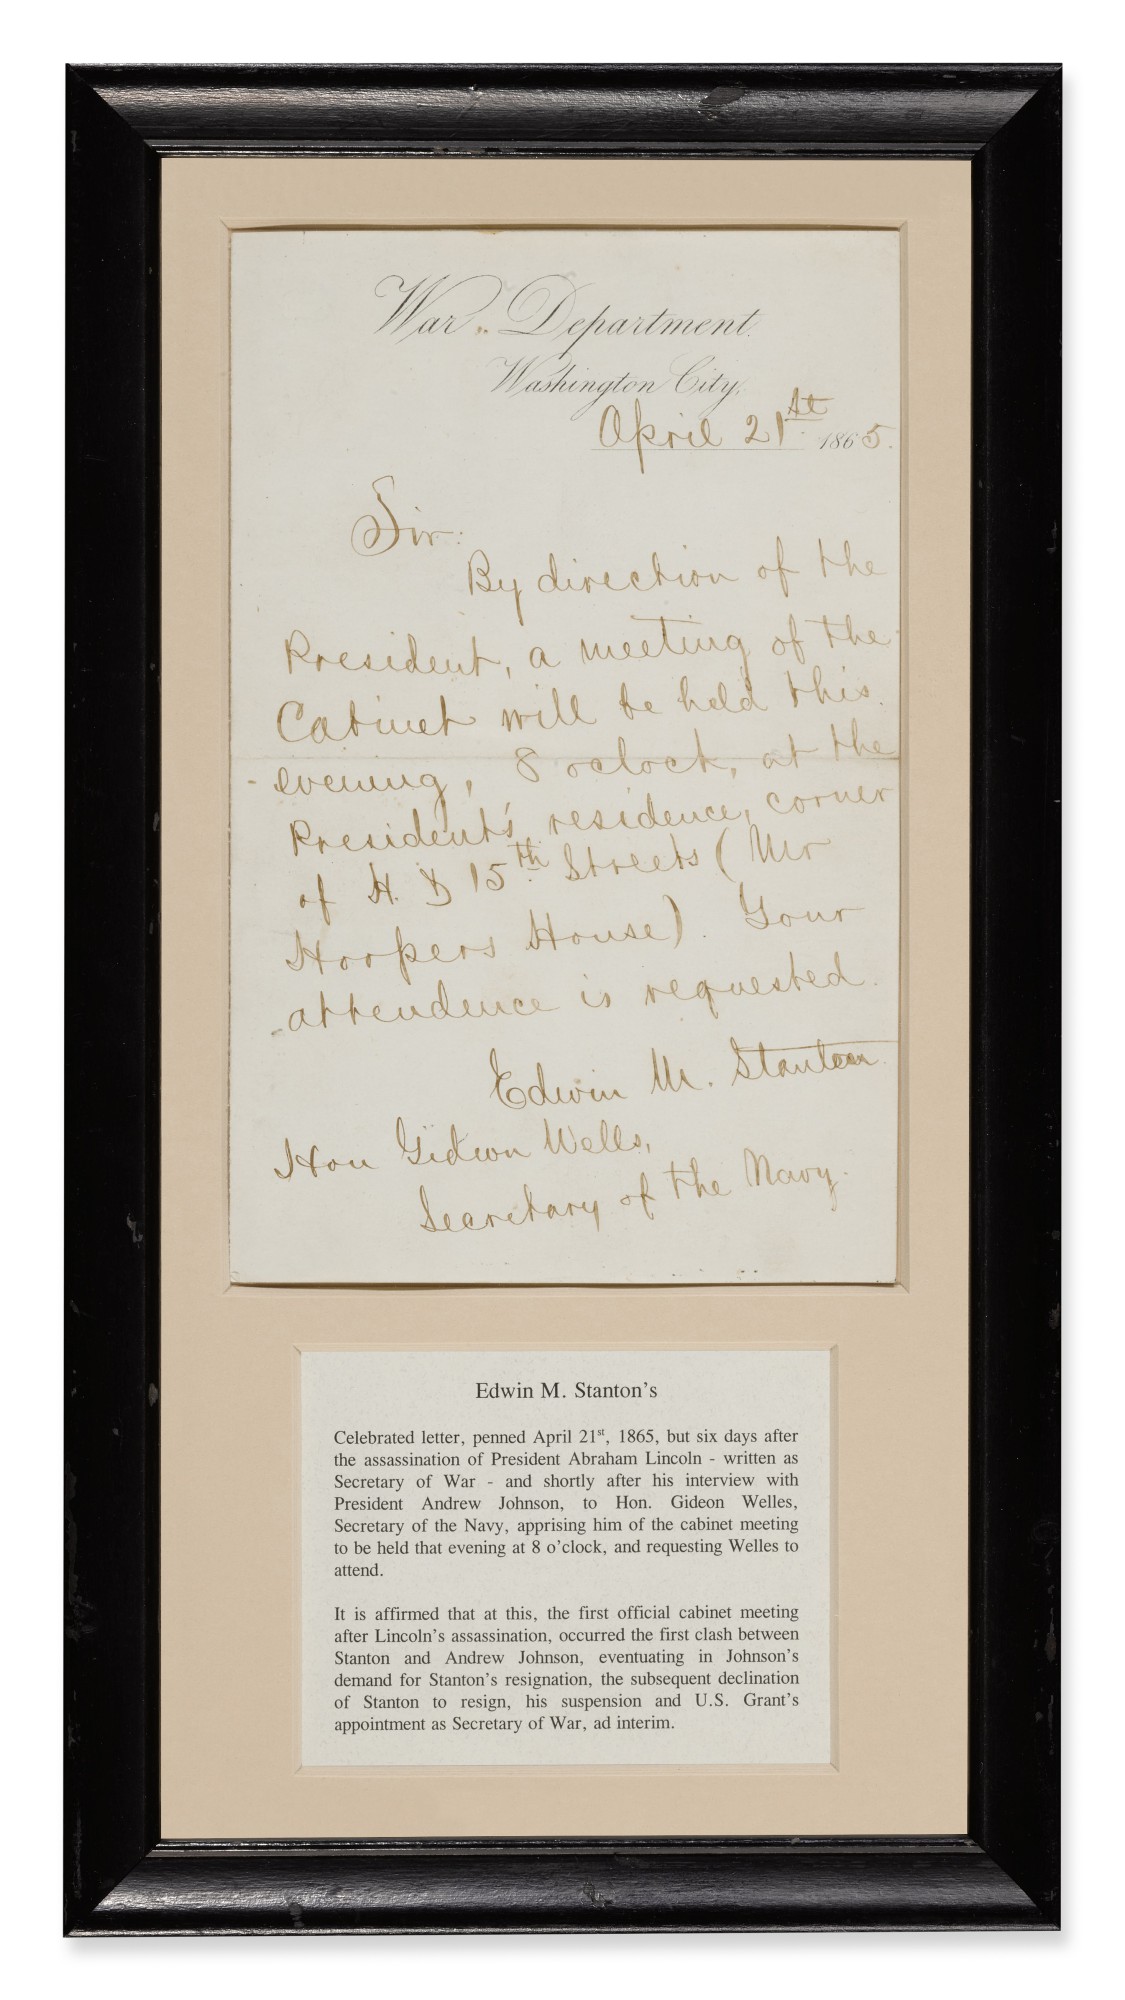 War Department.
Washington City,
April 21st 1865.
Sir:
By direction of the
President, a meeting of the
Cabinet will be held this
evening, 8 oclock, at the
President's residence, corner
of H. & 15th Streets (Mr
Hoopers House). Your
attendence is requested.
Edwin M. Stanton
Hon Gideon Wells,
Secretary of the Navy.
Edwin M. Stanton's
Celebrated letter, penned April 21st, 1865, but six days after
the assassination of President Abraham Lincoln - written as
Secretary of War - and shortly after his interview with
President Andrew Johnson, to Hon. Gideon Welles,
Secretary of the Navy, apprising him of the cabinet meeting
to be held that evening at 8 o'clock, and requesting Welles to
attend.
It is affirmed that at this, the first official cabinet meeting
after Lincoln's assassination, occurred the first clash between
Stanton and Andrew Johnson, eventuating in Johnson's
demand for Stanton's resignation, the subsequent declination
of Stanton to resign, his suspension and U.S. Grant's
appointment as Secretary of War, ad interim.